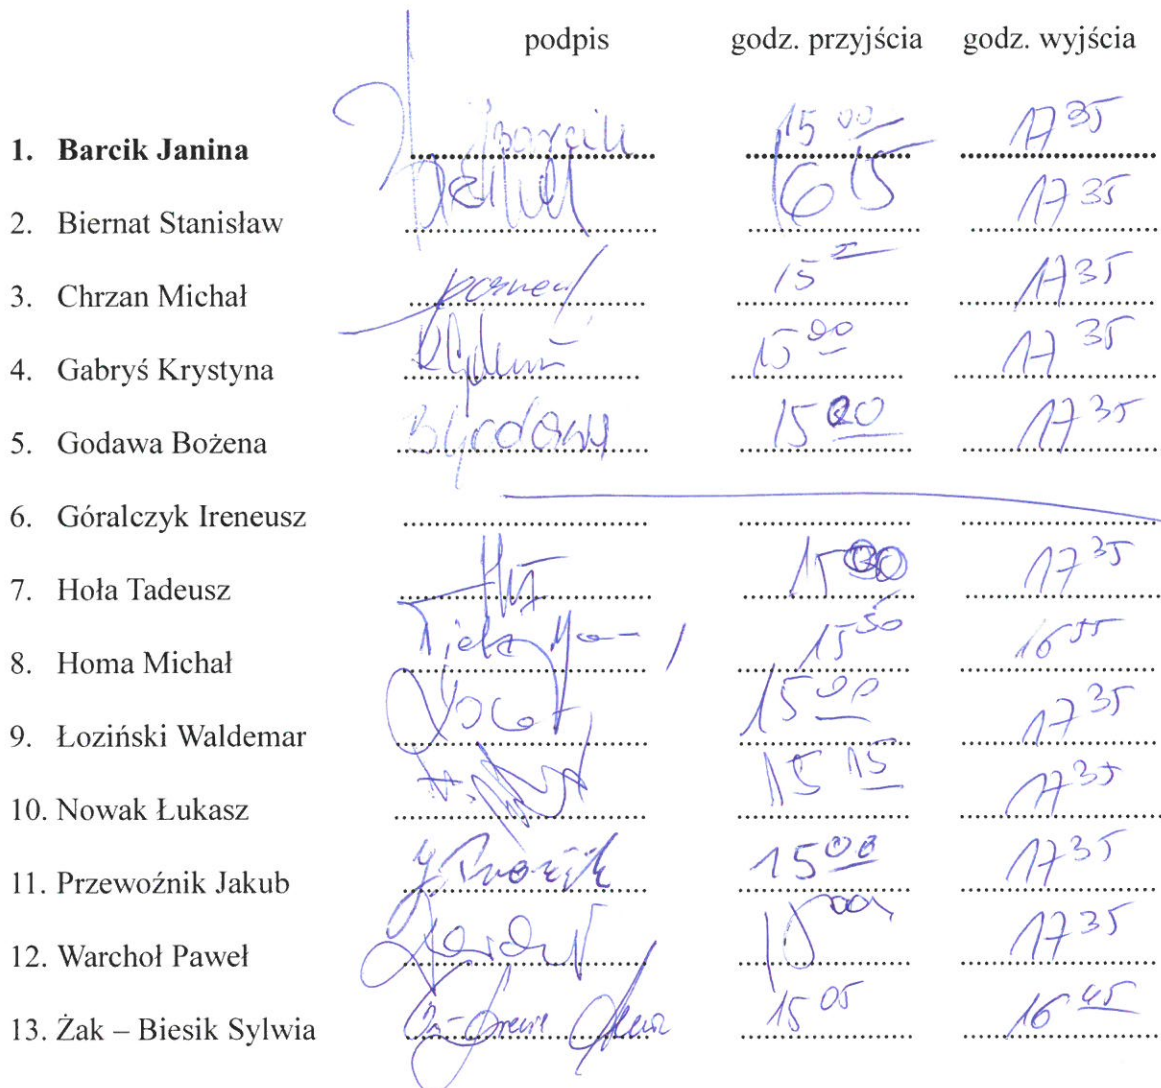 podpis godz. przyjścia godz. wyjścia
1. Barcik Janina JBarcik 15 00 17 35
2. Biernat Stanisław 16 15 17 35
3. Chrzan Michał 15 17 35
4. Gabryś Krystyna 15 00 17 35
5. Godawa Bożena 15 00 17 35
6. Góralczyk Ireneusz
7. Hoła Tadeusz 15 17 35
8. Homa Michał 15 50 16 55
9. Łoziński Waldemar 15 00 17 35
10. Nowak Łukasz 15 15 17 35
11. Przewoźnik Jakub 15 00 17 35
12. Warchoł Paweł 15 00 17 35
13. Żak – Biesik Sylwia 15 05 16 45